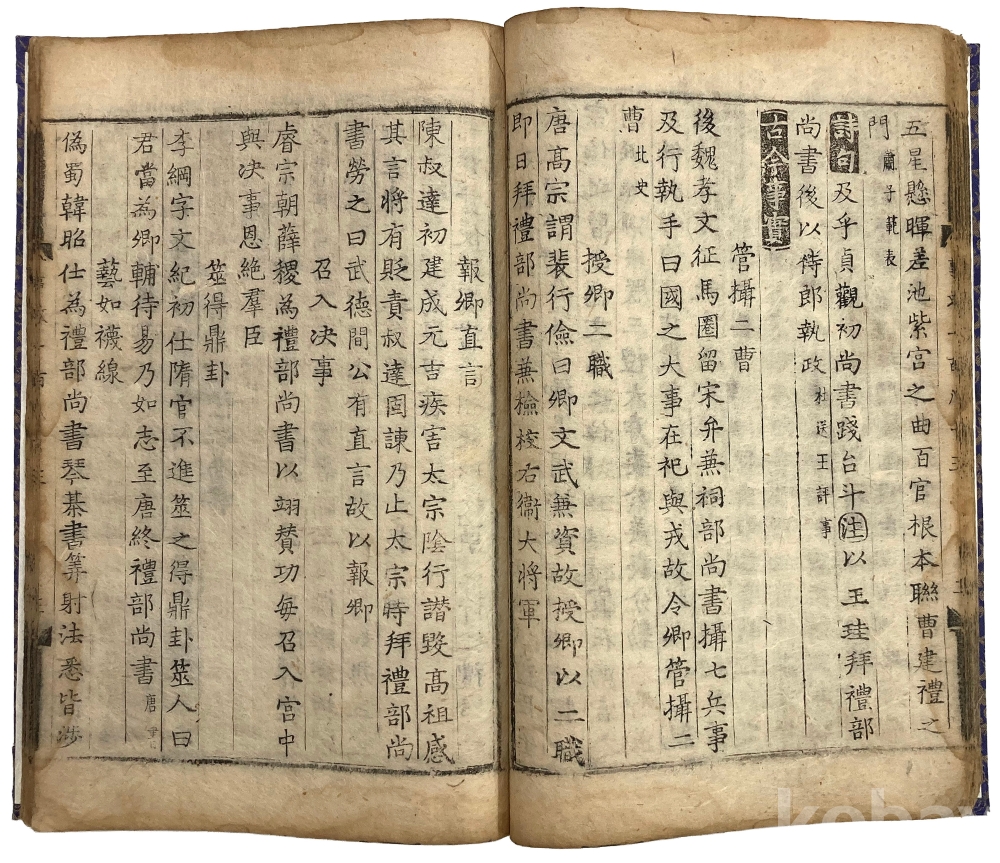 五星懸暉差池紫宮之曲百官根本聯曹建禮之
門 蕭子範表
詩句 及乎貞觀初尚書踐台斗 注 以王珪拜禮部
尚書後以侍郎執政 杜送王評事
古今事實
管攝二曹
後魏孝文征馬圈留宋弁兼祠部尚書攝七兵事
及行執手曰國之大事在祀與戎故令卿管攝二
曹 北史
授卿二職
唐高宗謂裴行儉曰卿文武兼資故授卿以二職
即日拜禮部尚書兼檢校右衞大將軍
報卿直言
陳叔達初建成元吉疾害太宗陰行譖毀高祖感
其言將有貶責叔達固諫乃止太宗時拜禮部尚
書勞之曰武德間公有直言故以報卿
召入决事
睿宗朝薛稷為禮部尚書以翊賛功每召入宮中
與决事恩絶羣臣
筮得鼎卦
李綱字文紀初仕隋官不進筮之得鼎卦筮人曰
君當為卿輔待易乃如志至唐終禮部尚書 唐
藝如襪線
偽蜀韓昭仕為禮部尚書琴棊書筭射法悉皆涉
kobay